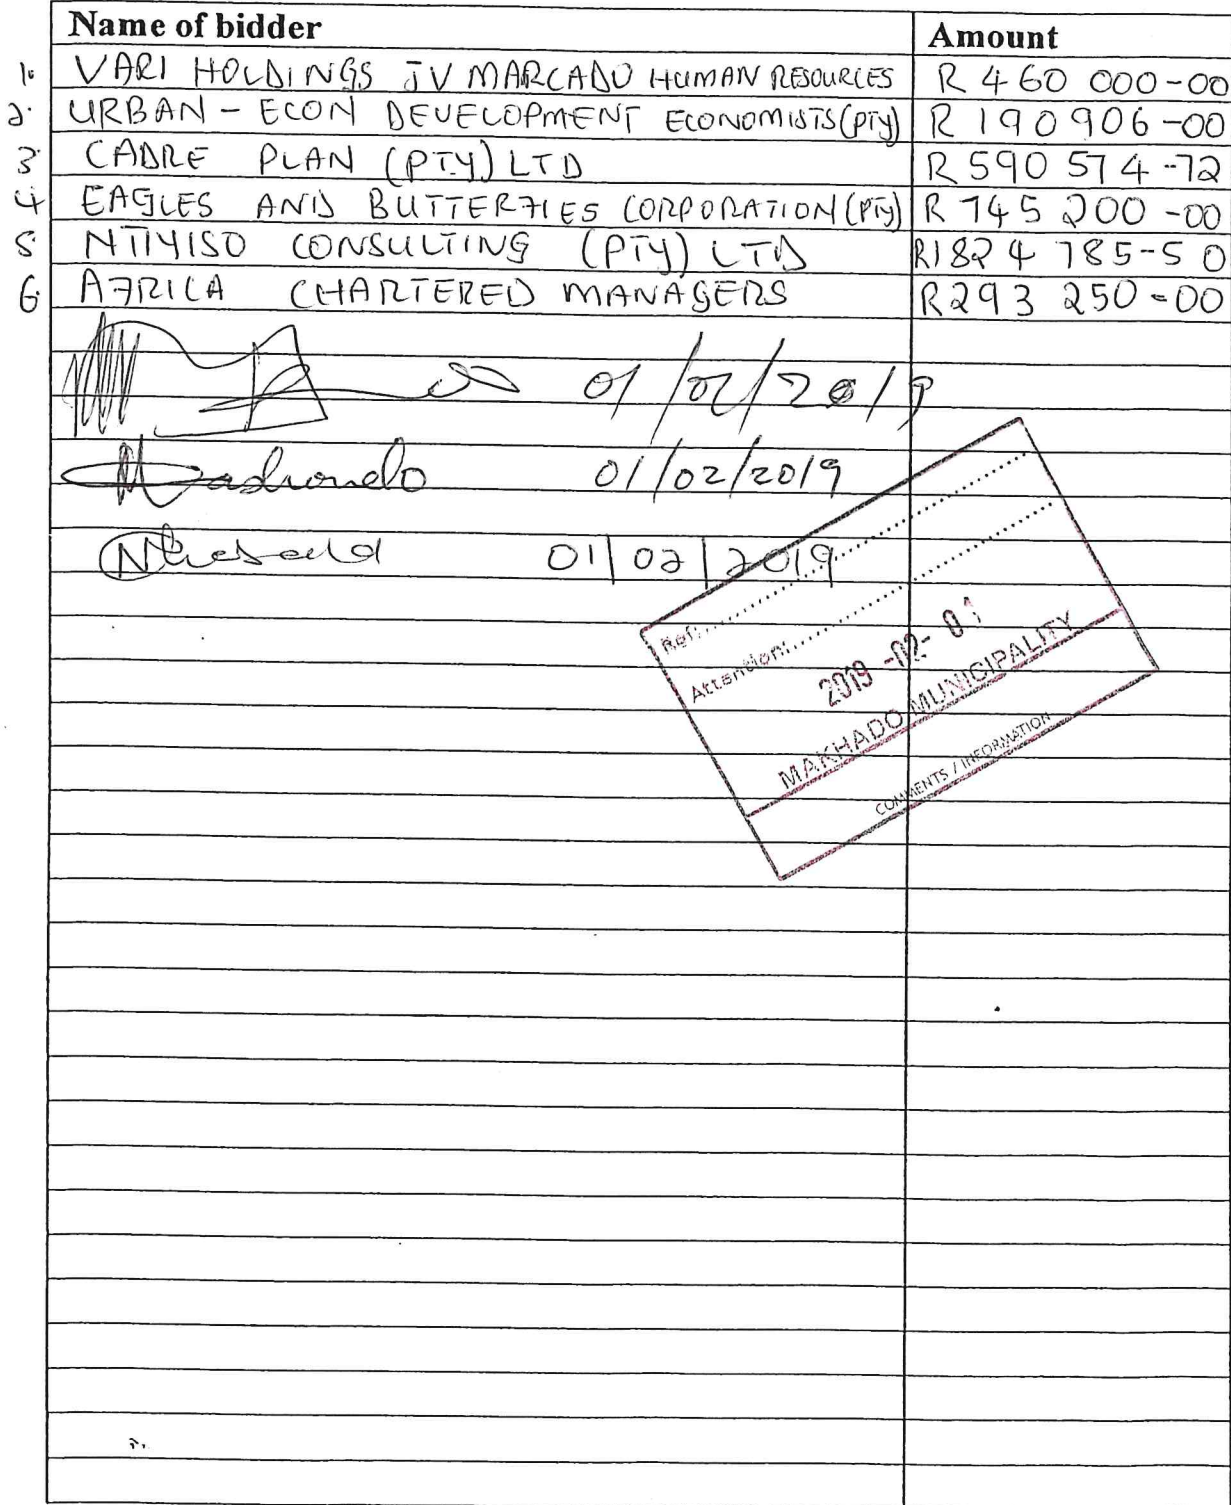 Name of bidder Amount
1. VARI HOLDINGS JV MARCADO HUMAN RESOURCES R 460 000-00
2. URBAN - ECON DEVELOPMENT ECONOMISTS (PTY) R 190 906-00
3. CADRE PLAN (PTY) LTD R 590 574-72
4. EAGLES AND BUTTERFLIES CORPORATION (PTY) R 745 200-00
5. NTIYISO CONSULTING (PTY) LTD R1824 785-50
6. AFRICA CHARTERED MANAGERS R293 250-00
01/02/2019
01/02/2019
01/02/2019
Ref:
Attention:
2019 -02- 01
MAKHADO MUNICIPALITY
COMMENTS / INFORMATION